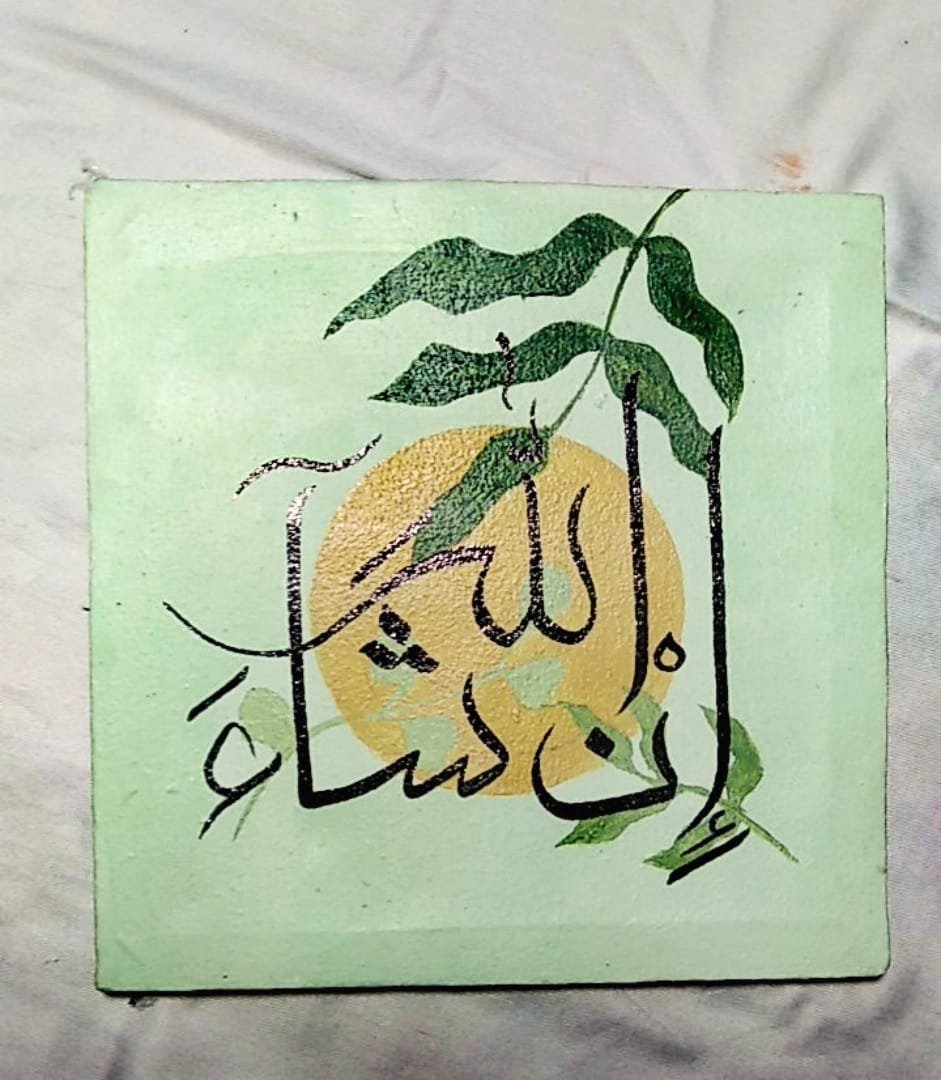 إِنْ شَآءَ اللّٰه